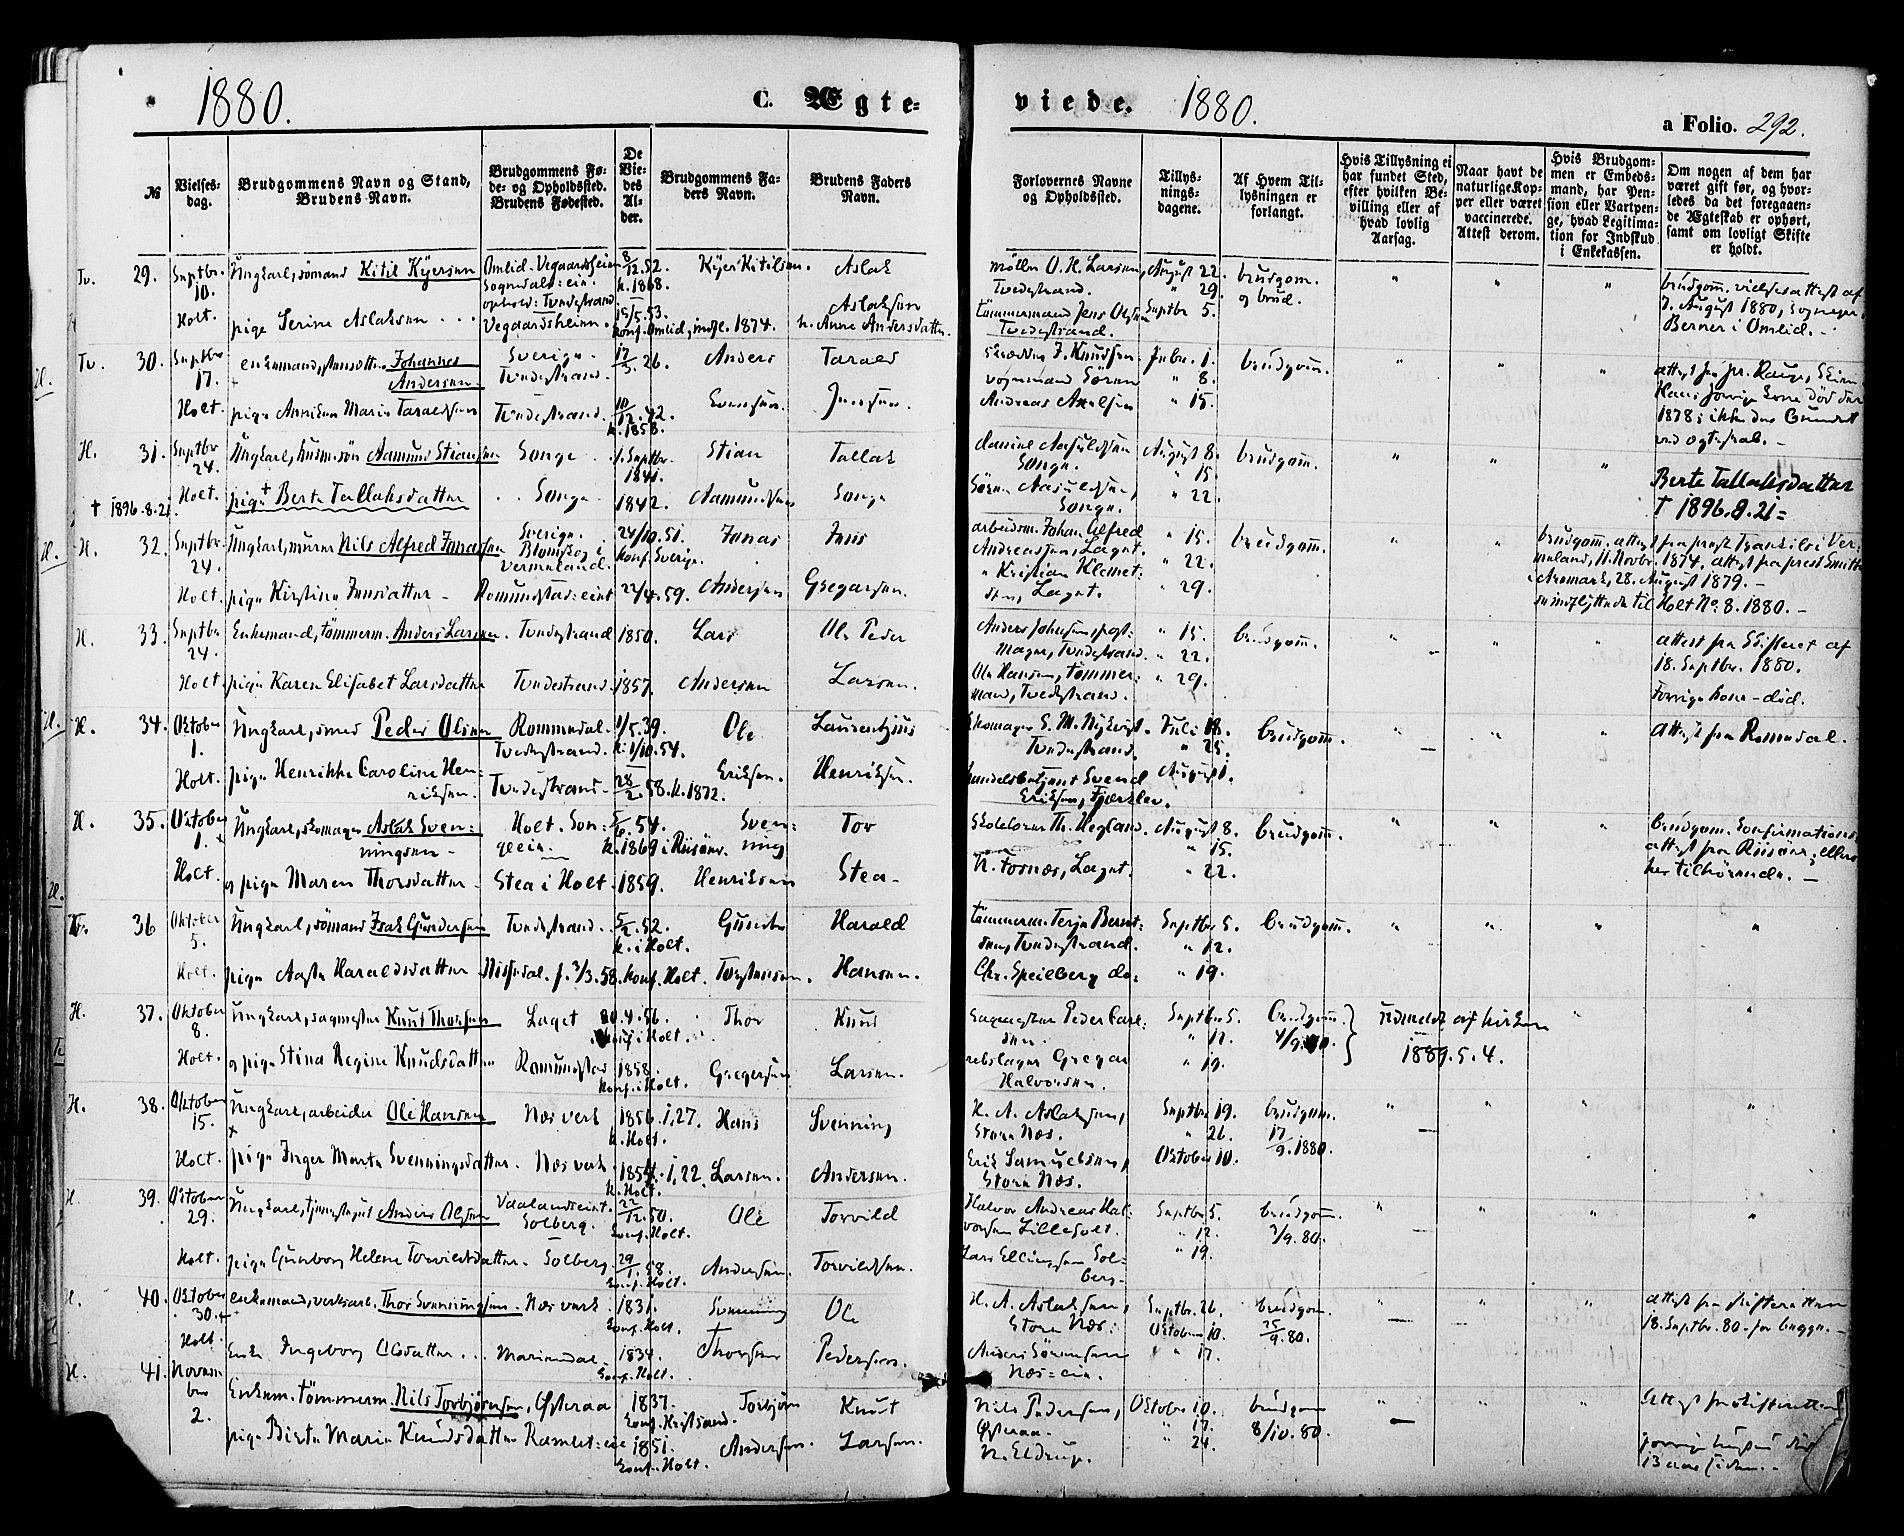 1880.
C. Ægte-
№
Vielses-
dag.
Brudgommens Navn og Stand,
Brudens Navn.
Brudgommens Fø-
de- og Opholdssted.
Brudens Fødested.
De
Vie-
des
Al-
der.
Brudgommens Fa-
ders Navn.
Brudens Faders
Navn.
Tv. 29. Septbr. Ungkarl, sømand Kitil Kjersen Omlid. Vegaardsheien 8/12.52. Kjer Kitilsen. Aslak
10. k. 1868.
Holt. pige Serine Aslaksen Vegaardsheien. 15/5.53. Aslaksen
konf. Omlid, 1874. Anne Andersdatter.
Tv. 30. Septbr. enkemand, Johannes Sverige. 17/5.26. Anders Tarald
17. Andersen Tvedestrand.
Holt. pige Anniken Marie Taraldsen Tvedestrand. 10/12.42. Evensen. Jensen.
k. 1858.
H. 31. Septbr. Ungkarl, husm.søn Aamund Stiansen Songe 1. Septbr. Stian Tallak
24. 1841.
† 1896.8.21 Holt. pige Berte Tallaksdatter Songe 1842. Aamundsen Songe
H. 32. Septbr. Ungkarl, murer Nils Alfred Jonassen Sverige. 24/10.51. Jonas Jens
24. Blomskog i konf. Sverige.
Vermeland.
Holt. pige Kirstine Jensdatter Romundstad: eiet 22/4.59. Andersen Gregersen.
H. 33. Septbr. Enkemand, tømmerm. Anders Larsen. Tvedestrand 1850. Lars Ole Peder
24.
Holt. pige Karen Elisabet Larsdatter Tvedestrand. 1857. Andersen Larsen.
H. 34. Oktober Ungkarl, smed Peder Olsen Rommedal. 1/5.39. Ole Laurentius
1. Tvedestrand. k. 1/10.54.
Holt. pige Henrikke Caroline Hen- Tvedestrand 28/2.58. k. 1872. Eriksen. Henriksen.
riksen.
H. 35. Oktober Ungkarl, skomager Aslak Sven- Holt. Son- 5/6.54. Sven- Tor
1. ningsen geeie. k. 1869 i Risøer. ning
Holt og pige Maren Thorsdatter Stea i Holt. 1859. Henriksen Stea
36 Oktober Ungkarl, sømand Isak Gundersen Tvedestrand. 5/2.52. Gunder Harald
5. k. i Holt.
Holt. pige Aaste Haraldsdatter Nissedal. f. 3/3.58. konf. Holt. Torstensen. Hansen.
H. 37. Oktober Ungkarl, sagmester Knut Thorsen Laget 20.4.56. Thor Knud
8. konf. i Holt.
Holt. og pige Stina Regine Knudsdatter Romundstad 1858. Gregersen Larsen.
konf. i Holt.
H. 38. Oktober Ungkarl, arbeider Ole Hansen Næs verk 1856. 1,27. Hans Svenning
15. k. Holt.
Holt. pige Inger Marte Svenningsdatter. Næs verk 1854. 1,22. Larsen. Andersen.
k. Holt.
H. 39. Oktober Ungkarl, Anders Olsen Vaalandseiet. 22/12.50. Ole Torvild
29. Solberg. konf. Holt.
Holt. pige Gunborg Helene Torvildsdatter. Solberg. 29/1.58. Andersen. Torvildsen.
konf. Holt.
H. 40. Oktober enkemand, verksarb. Thor Svenningsen. Næs verk 1831. Svenning Ole
30. konf. Holt.
Holt. Enke Ingeborg Olsdatter Mariendal 1834. Thorsen Pedersen.
konf. Holt.
H. 41. Novem- Enkem. tømmerm. Nils Torbjørnsen, Østeraa 1837. Torbjørn Knut
ber konf. Kristsand.
2. pige Birte Marie Knudsdatter Ramlet: eie 1851. Andersen. Larsen.
konf. Holt.
viede. 1880.
a Folio. 292.
Forlovernes Navne
og Opholdssted.
Tillys-
nings-
dagene.
Af Hvem Til-
lysningen er
forlangt.
Hvis Tillysning ei
har fundet Sted,
efter hvilken Be-
villing eller af
hvad lovlig
Aarsag.
Naar havt de
naturlige Kop-
per eller været
vaccinerede.
Attest derom.
Hvis Brudgom-
men er Embeds-
mand, har Pen-
sion eller Vartpen-
ge, hvad Legitima-
tion for Indskud
i Enkekassen.
Om nogen af dem har
været gift før, og hvor-
ledes da det foregaaen-
de Ægteskab er ophørt,
samt om lovligt Skifte
er holdt.
møller O. H. Larsen, August 22. brudgom. brudgom. vielsesattest af
Tvedestrand. " 29. og brud. 7. August 1880, Sognepr.
tømmermand Jens Olsen Septbr. 5. Berner i Omlid.
Tvedestrand.
skrædder J. Knudsen. Febr. 1. brudgom.
vognmand Søren " 8.
Andreas Axelsen " 15. 1878; ikke
Daniel Aasuldsen August 8. brudgom.
Songe. " 15. Berte Tallaksdatter
Søren Aasuldsen, " 22. † 1896.8.21=
Songe.
arbeidsm. Johan Alfred " 15. brudgom. brudgom. attest fra prest Frankils i Ver-
Andreassen, Laget. " 22. meland, 11. Novbr. 1874. attest fra prest Smitt
" Kristian Klemet- i Aremark, 28. August 1879.
sen, Laget. " 29. se indflyttede til Holt No. 8. 1880.
Anders Johnsen " 15. brudgom. attest fra Skifteret af
Tvedestrand. " 22. 18. Septbr. 1880.
Ole Hansen, tømmer- " 29. Forrige kone død.
mand, Tvedestrand.
Skomager S. M. Nykvist. Juli 18. brudgom. Attest fra Romsdal.
Tvedestrand. " 25.
handelsbetjent Svend August 1.
Eriksen, Fjærekleiv.
Skolelærer Th. Hegland. August 8. brudgom. brudgom. konfirmations-
" 15. attest fra Risøer, ellers
N. Fosnæs, Laget. " 22. her tilhørende.
tømmerm. Terje Bernt- Septbr. 5. brudgom.
sen, Tvedestrand. " 12.
Chr. Speilberg do. " 19.
Sagmester Peder Carl- Septbr. 5. brudgom. udmeldt af kirken
sen. " 12. 4/9.80. 1889.5.4.
rebslager Gregar " 19.
Halvorsen.
H. A. Aslaksen, Septbr. 19. brudgom.
Store Næs. " 26. 17/9.1880.
Erik Samuelsen, Oktober 10.
Store Næs.
Halvor Andreas Hal- Septbr. 5. brudgom.
vorsen Lilleholt. " 12. 3/9.80.
Lars Ellingsen Sol- " 19.
berg.
H. A. Aslaksen, Septbr. 26. brudgom. Attest fra skifteretten
Store Næs. Oktober 10. 25/9.80. 18. Septbr. 80 for begge.
Anders Sørensen " 17.
Næs: eie.
Nils Pedersen, Oktober 10. brudgom Attest fra skifteretten
Østeraa. " 17. 8/10.80.
N. Eldrup. " 24. forrige hustru død
13 aar siden.